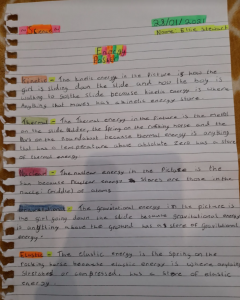 Science 28/01/2021
Energy
Poster
Kinetic - The kinetic energy in the picture is how the
girl is sliding down the slide and how the boy is
walking to the slide because kinetic energy is where
anything that moves has a kinetic energy store.
Thermal - The thermal energy in the picture is the metal
on the slide ladder, the spring on the rocking horse and the
because thermal energy is anything
that has a temperature above absolute zero has a store
of thermal energy.
Nuclear - The nuclear energy in the picture is the
sun because nuclear energy stores are those in the
nuclei (middle) of atoms.
Gravitational - The gravitational energy in the picture is
the girl going down the slide because gravitational energy
is anything above the ground has a store of gravitational
energy.
Elastic - The elastic energy is the spring on the
rocking horse because elastic energy is where anything
stretched or compressed, has a store of elastic
energy.